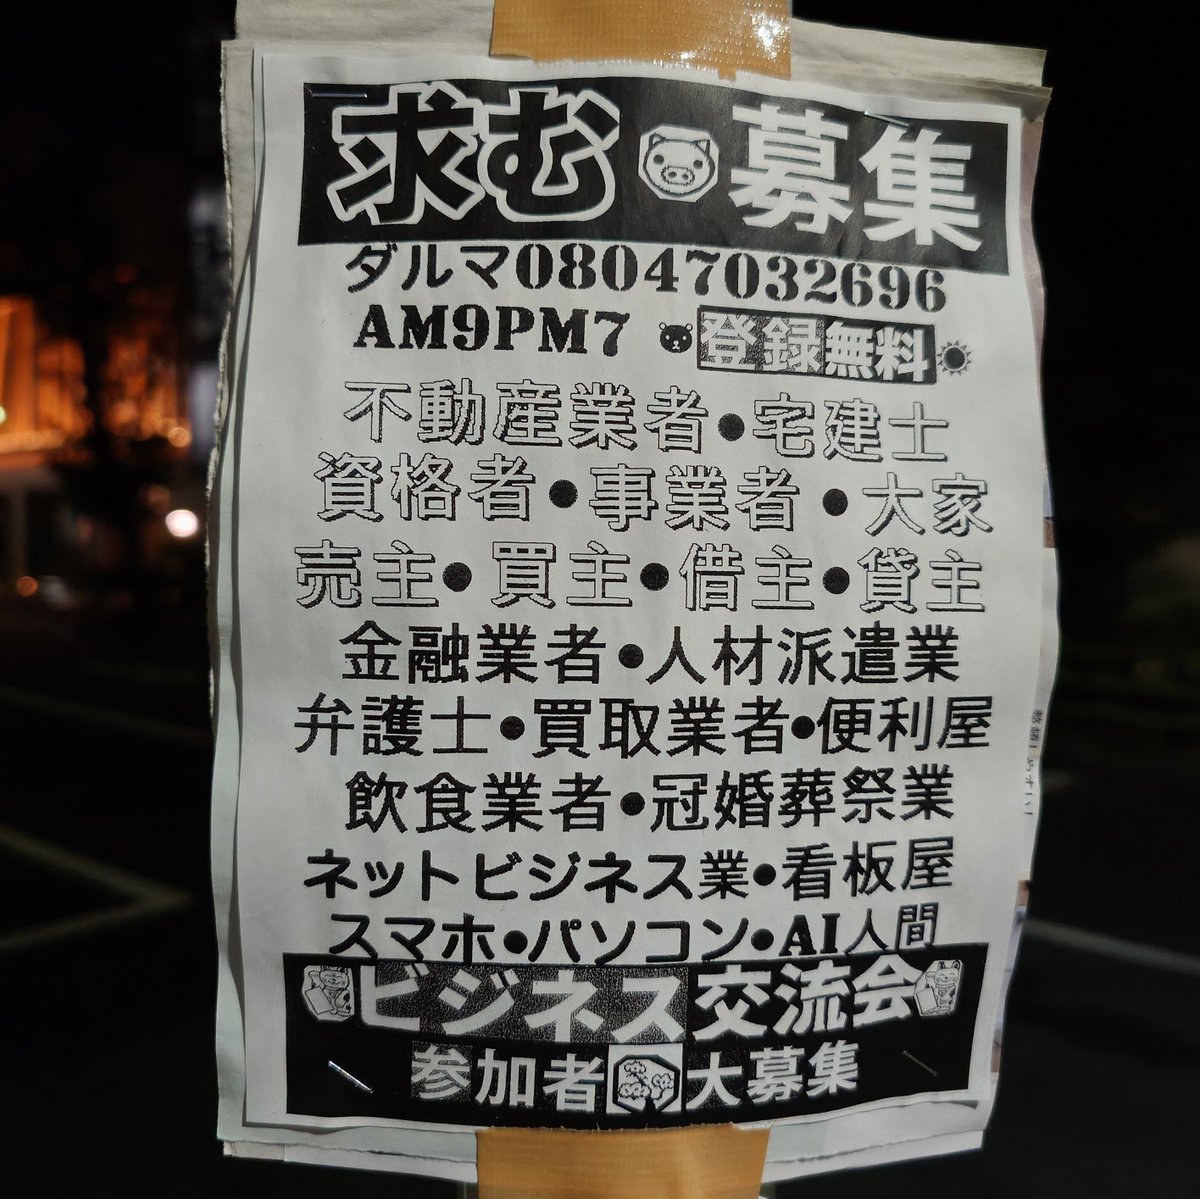 求む 募集
ダルマ08047032696
AM9PM7 登録無料
不動産業者●宅建士
資格者●事業者●大家
売主●買主●借主●貸主
金融業者●人材派遣業
弁護士●買取業者●便利屋
飲食業者●冠婚葬祭業
ネットビジネス業●看板屋
スマホ●パソコン●AI人間
ビジネス交流会
参加者 大募集